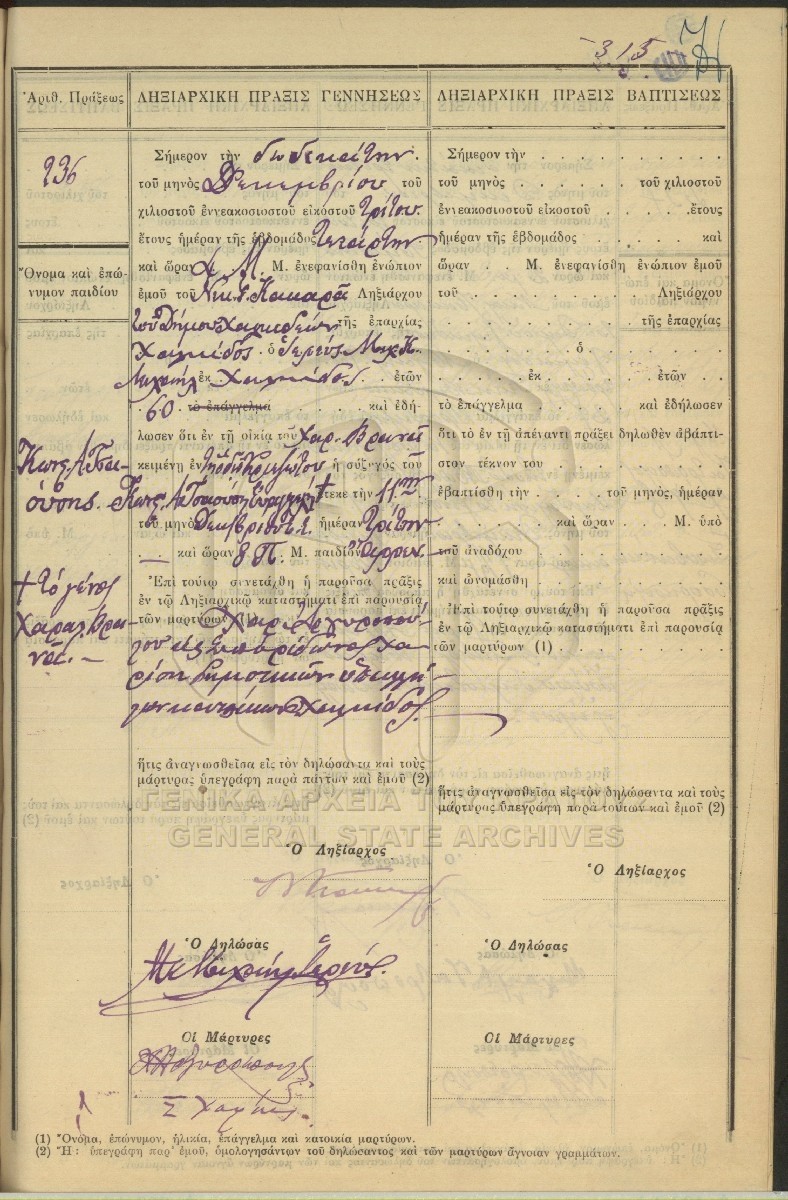 315
71
Ἀριθ. Πράξεως
ΛΗΞΙΑΡΧΙΚΗ ΠΡΑΞΙΣ ΓΕΝΝΗΣΕΩΣ
ΛΗΞΙΑΡΧΙΚΗ ΠΡΑΞΙΣ ΒΑΠΤΙΣΕΩΣ
236
Ὄνομα καὶ ἐπώ-
νυμον παιδίου
† τὸ γένος
Χαραλ. Βρα-
νᾶ. —
Σήμερον τὴν δωδεκάτην
τοῦ μηνὸς Δεκεμβρίου τοῦ
χιλιοστοῦ ἐννεακοσιοστοῦ εἰκοστοῦ τρίτου
ἔτους ἡμέραν τῆς ἑβδομάδος Τετάρτην
καὶ ὥραν 4 Μ. Μ. ἐνεφανίσθη ἐνώπιον
ἐμοῦ τοῦ Νικ. Ληξιάρχου
τοῦ Δήμου Χαλκιδέων τῆς ἐπαρχίας
Χαλκίδος ὁ Ἱερεὺς Μιχ. Κ.
Μιχαὴλ ἐκ Χαλκίδος ἐτῶν
60 τὸ ἐπάγγελμα καὶ ἐδή-
λωσεν ὅτι ἐν τῇ οἰκίᾳ τοῦ Χαρ. Βρανᾶ
κειμένῃ ἐν τῇ ὁδῷ ἡ σύζυγος τοῦ
Κων. † ἔτεκε τὴν 11ην
τοῦ μηνὸς Δεκεμβρίου ἡμέραν Τρίτην
— καὶ ὥραν 8 Π. Μ. παιδίον ἄρρεν
Ἐπὶ τούτῳ συνετάχθη ἡ παροῦσα πρᾶξις
ἐν τῷ Ληξιαρχικῷ καταστήματι ἐπὶ παρουσίᾳ
τῶν μαρτύρων Χαρ. Ἀργυροπού-
λου καὶ Σπυρίδωνος Χα-
δημοτικῶν ὑπαλλή-
λων κατοίκων Χαλκίδος.
ἥτις ἀναγνωσθεῖσα εἰς τὸν δηλώσαντα καὶ τοὺς
μάρτυρας ὑπεγράφη παρὰ πάντων καὶ ἐμοῦ (2)
Ὁ Ληξίαρχος
Ὁ Δηλώσας
Μ Κ Μιχαὴλ Ἱερεύς.
Οἱ Μάρτυρες
Σήμερον τὴν
τοῦ μηνὸς τοῦ χιλιοστοῦ
ἐννεακοσιοστοῦ εἰκοστοῦ ἔτους
ἡμέραν τῆς ἑβδομάδος καὶ
ὥραν Μ. ἐνεφανίσθη ἐνώπιον ἐμοῦ
τοῦ Ληξιάρχου
τῆς ἐπαρχίας
ὁ
ἐκ ἐτῶν
τὸ ἐπάγγελμα καὶ ἐδήλωσεν
ὅτι τὸ ἐν τῇ ἀπέναντι πράξει δηλωθὲν ἀβάπτι-
στον τέκνον του
ἐβαπτίσθη τὴν τοῦ μηνός, ἡμέραν
καὶ ὥραν Μ. ὑπὸ
τοῦ ἀναδόχου
καὶ ὠνομάσθη
Ἐπὶ τούτῳ συνετάχθη ἡ παροῦσα πρᾶξις
ἐν τῷ Ληξιαρχικῷ καταστήματι ἐπὶ παρουσίᾳ
τῶν μαρτύρων (1)
ἥτις ἀναγνωσθεῖσα εἰς τὸν δηλώσαντα καὶ τοὺς
μάρτυρας ὑπεγράφη παρὰ τούτων καὶ ἐμοῦ (2)
Ὁ Ληξίαρχος
Ὁ Δηλώσας
Οἱ Μάρτυρες
ΓΕΝΙΚΑ ΑΡΧΕΙΑ
GENERAL STATE ARCHIVES
(1) Ὄνομα, ἐπώνυμον, ἡλικία, ἐπάγγελμα καὶ κατοικία μαρτύρων.
(2) Ἤ: ὑπεγράφη παρ' ἐμοῦ, ὁμολογησάντων τοῦ δηλώσαντος καὶ τῶν μαρτύρων ἄγνοιαν γραμμάτων.